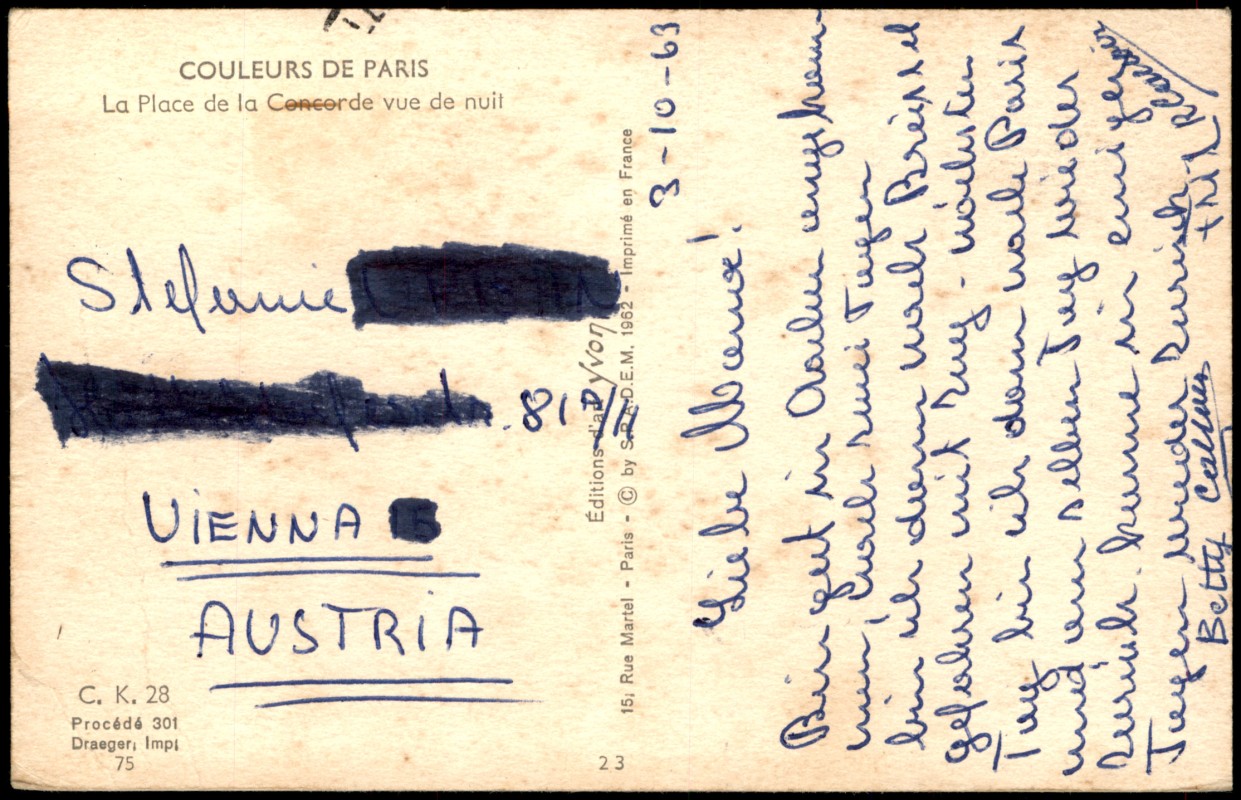 COULEURS DE PARIS
La Place de la Concorde vue de nuit
Stefanie
81 P/11
VIENNA
AUSTRIA
C. K. 28
Procédé 301
Draeger, Imp.
75
23
Éditions d'art Yvon
15, Rue Martel - Paris - © by S.P.A.D.E.M. 1962 - Imprimé en France
3-10-63
Liebe Mama!
Bin gut in Aachen angekom-
men, nach zwei Tagen
bin ich dann nach Brüssel
gefahren mit Zug - nächsten
Tag bin ich dann nach Paris
und am selben Tag wieder
zurück. komme in einigen
Tagen wieder zurück
Betty